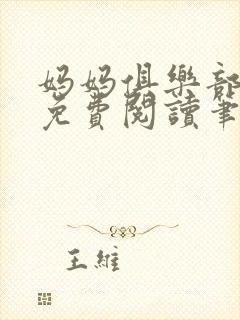 媽媽俱樂部
免費閱讀筆
王維